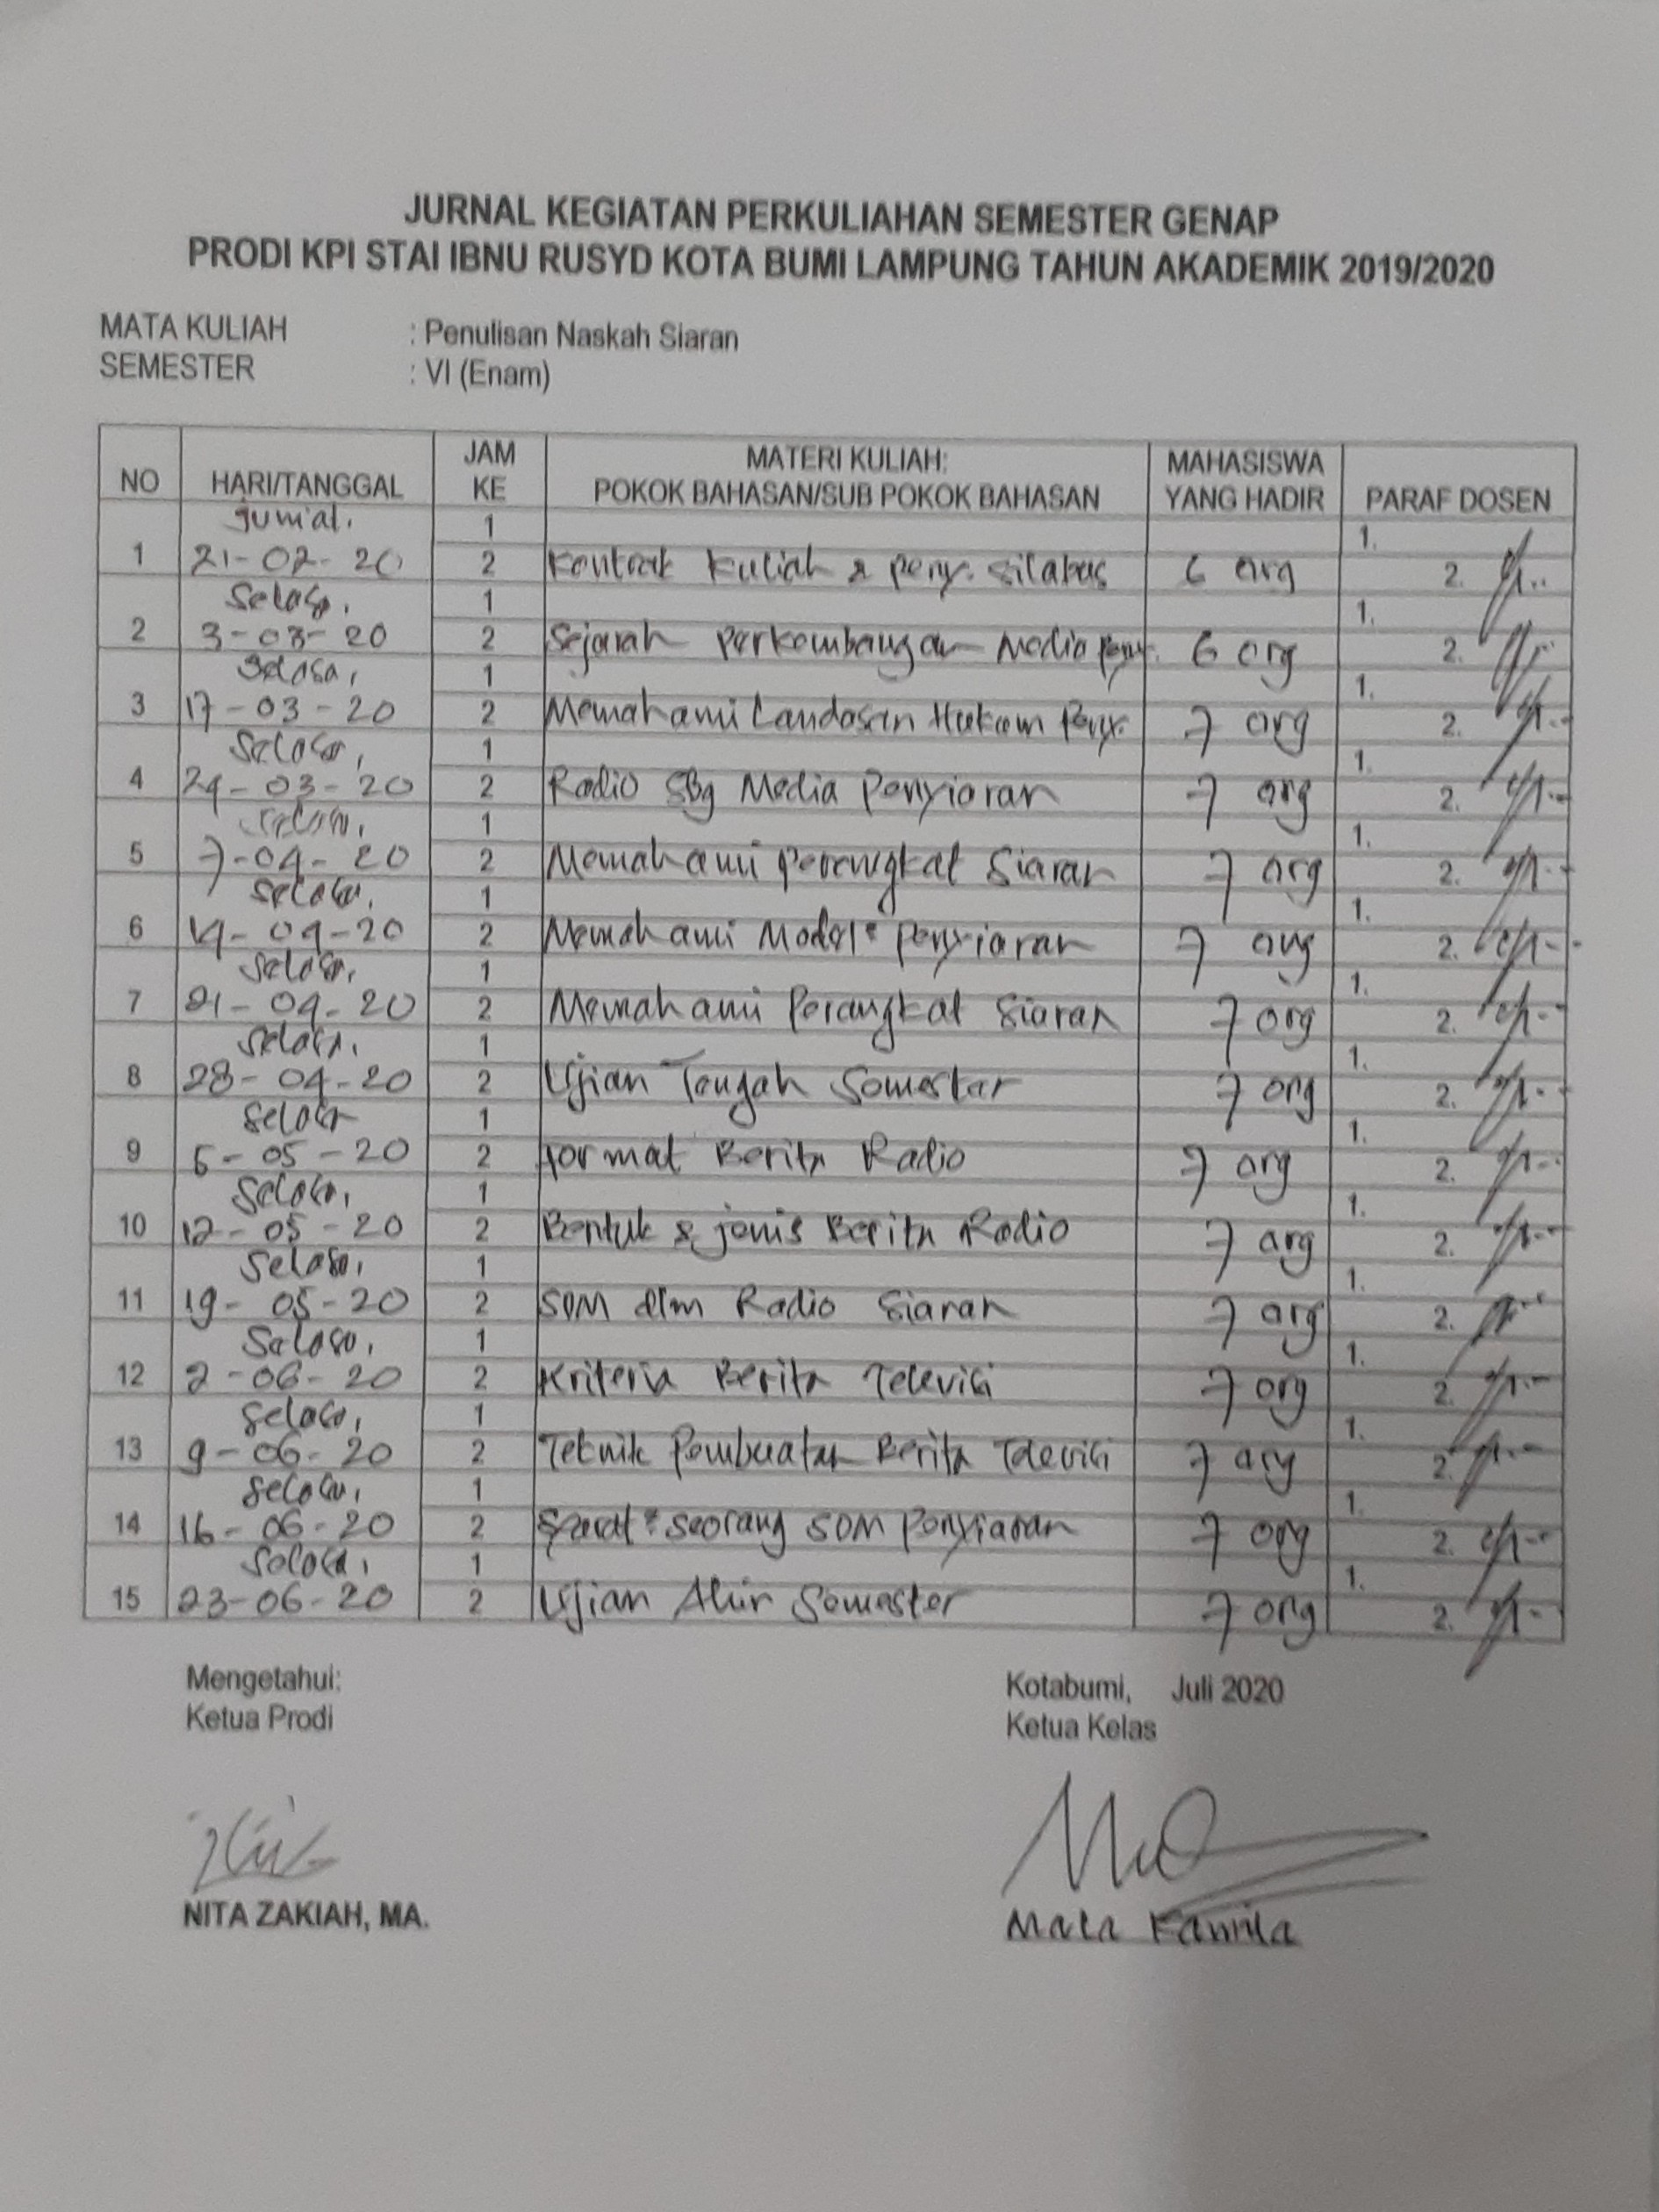 JURNAL KEGIATAN PERKULIAHAN SEMESTER GENAP
PRODI KPI STAI IBNU RUSYD KOTA BUMI LAMPUNG TAHUN AKADEMIK 2019/2020
MATA KULIAH : Penulisan Naskah Siaran
SEMESTER : VI (Enam)
NO HARI/TANGGAL JAM KE MATERI KULIAH: POKOK BAHASAN/SUB POKOK BAHASAN MAHASISWA YANG HADIR PARAF DOSEN
Jum'at, 1 1.
1 21-02-20 2 Kontrak Kuliah & peny. silabus 6 org 2.
Selasa, 1 1.
2 3-03-20 2 Sejarah Perkembangan Media peny. 6 org 2.
Selasa, 1 1.
3 17-03-20 2 Memahami Landasan Hukum Peny. 7 org 2.
Selasa, 1 1.
4 24-03-20 2 Radio Sbg Media Penyiaran 7 org 2.
Selasa, 1 1.
5 7-04-20 2 Memahami Perangkat Siaran 7 org 2.
Selasa, 1 1.
6 14-04-20 2 Memahami Model² Penyiaran 7 org 2.
Selasa, 1 1.
7 21-04-20 2 Memahami Perangkat Siaran 7 org 2.
Selasa, 1 1.
8 28-04-20 2 Ujian Tengah Semester 7 org 2.
Selasa 1 1.
9 5-05-20 2 Format Berita Radio 7 org 2.
Selasa, 1 1.
10 12-05-20 2 Bentuk & jenis Berita Radio 7 org 2.
Selasa, 1 1.
11 19-05-20 2 SDM dlm Radio Siaran 7 org 2.
Selasa, 1 1.
12 2-06-20 2 Kriteria Berita Televisi 7 org 2.
Selasa, 1 1.
13 9-06-20 2 Teknik Pembuatan Berita Televisi 7 org 2.
Selasa, 1 1.
14 16-06-20 2 Syarat² seorang SDM Penyiaran 7 org 2.
Selasa, 1 1.
15 23-06-20 2 Ujian Ahir Semester 7 org 2.
Mengetahui: Kotabumi, Juli 2020
Ketua Prodi Ketua Kelas
NITA ZAKIAH, MA. Mala Kamila